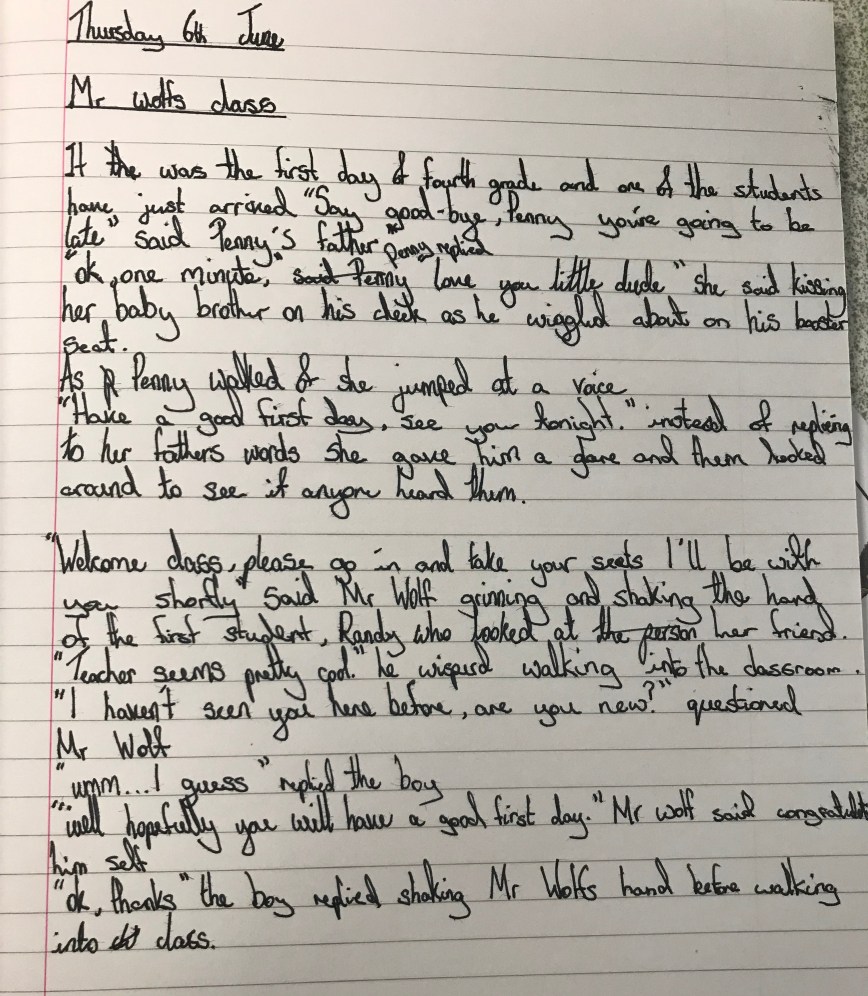 Thursday 6th June
Mr wolfs class
It the was the first day of fourth grade and one of the students
have just arrived "Say good-bye, Penny you're going to be
late" said Penny's father
Penny replied
"ok one minute," said Penny love you little dude" she said kissing
her baby brother on his cheek as he wiggled about on his booster
seat.
As P Penny walked of she jumped at a voice
"Have a good first day, see you tonight." instead of replieing
to her fathers words she gave him a glare and them looked
around to see if anyone heard them.
"Welcome class, please go in and take your seats I'll be with
you shortly" said Mr Wolf grinning and shaking the hand
of the first student, Randy who looked at the person her friend.
"Teacher seems pretty cool." he wisperd walking into the classroom.
"I haven't seen you here before, are you new?" questioned
Mr Wolf
"umm...I guess" replied the boy
"well hopefully you will have a good first day." Mr wolf said
him self
"ok, thanks" the boy replied shaking Mr Wolfs hand before walking
into class.